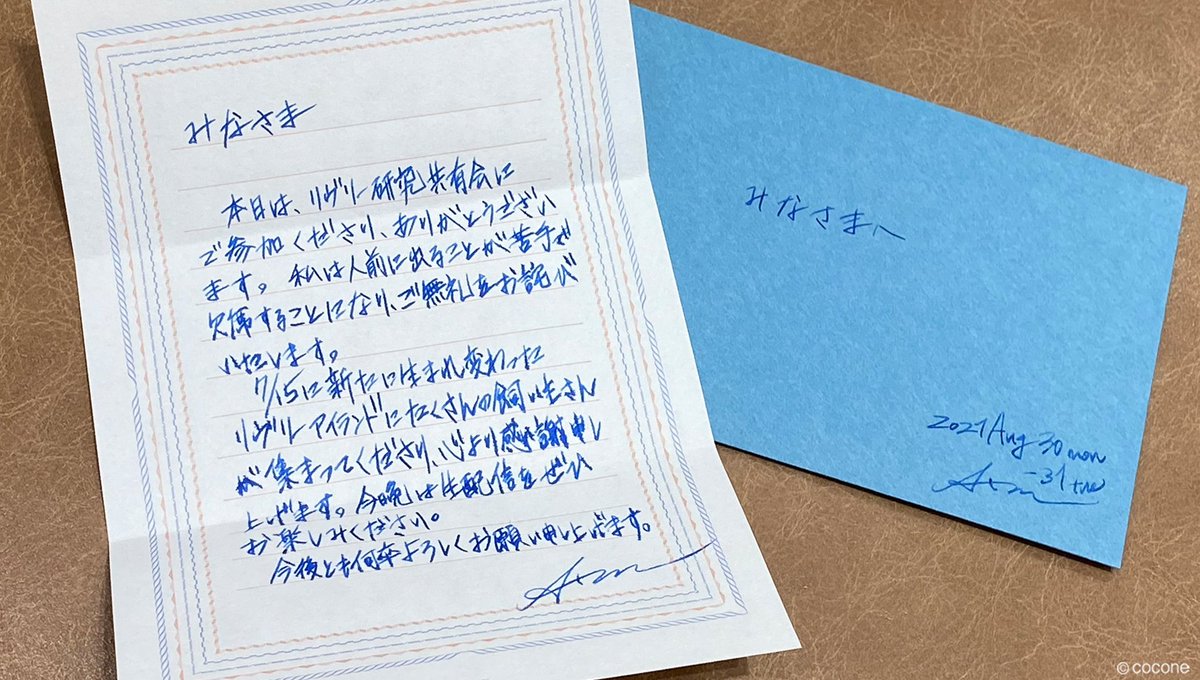 みなさま
本日は、リヴリー研究共有会に
ご参加くださり、ありがとうござい
ます。私は人前に出ることが苦手で
欠席することになり、ご無礼をお詫び
いたします。
7/15に新たに生まれ変わった
リヴリーアイランドにたくさんの飼い主さん
が集まってくださり、心より感謝申し
上げます。今晩は生配信をぜひ
お楽しみください。
今後とも何卒よろしくお願い申し上げます。
みなさまへ
2021 Aug 30 mon
-31 tue
© cocone